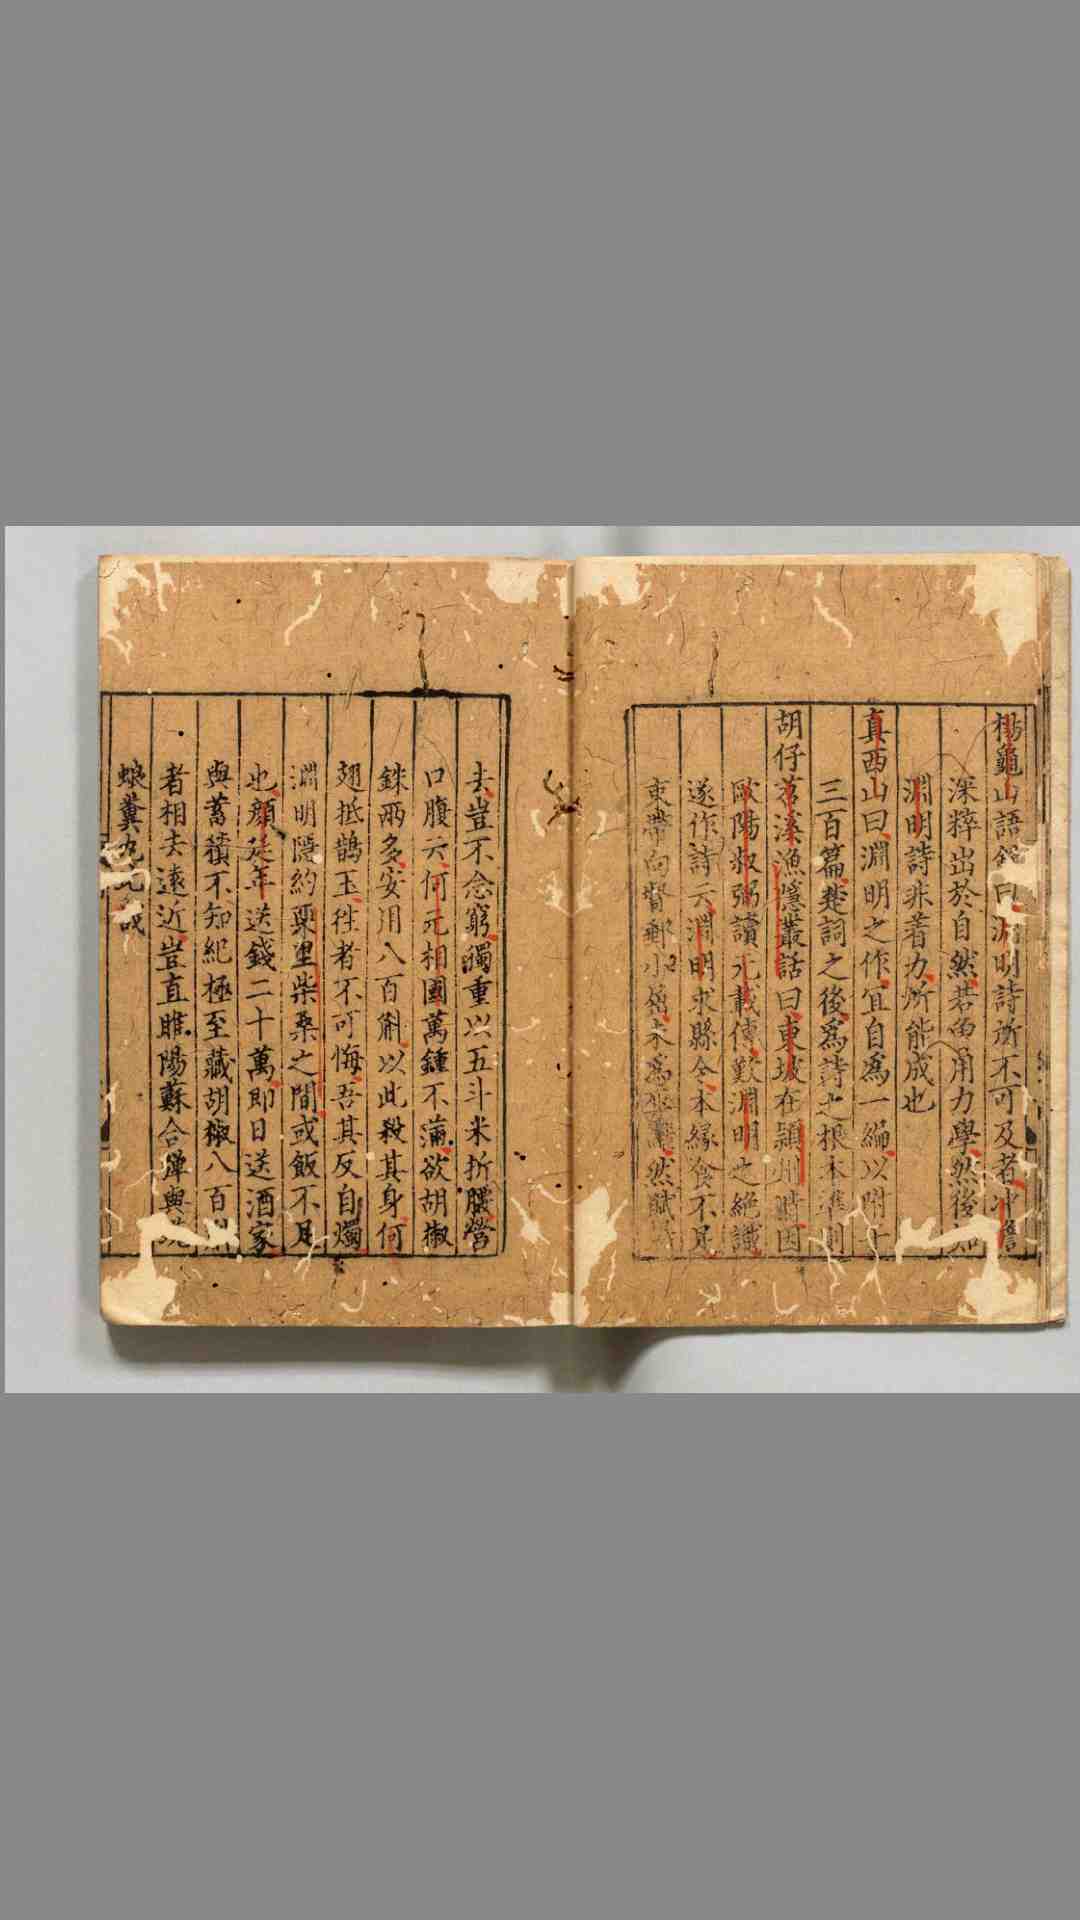 楊龜山語錄曰淵明詩所不可及者冲澹
深粹出於自然若曾用力學然後知
淵明詩非着力所能成也
真西山曰淵明之作宜自為一編以附于
三百篇楚詞之後為詩之根本凖則
胡仔苕溪漁隱叢話曰東坡在穎州時因
歐陽叔弼讀元載傳歎淵明之絶識
遂作詩云淵明求縣令本緣食不足
束帶向督郵小屈未為辱翻然賦歸
去豈不念窮獨重以五斗米折腰營
口腹云何元相國萬鍾不滿欲胡椒
銖兩多安用八百斛以此殺其身何
翅抵鵲玉徃者不可悔吾其反自燭
淵明隱約栗里柴桑之間或飯不足
也顔延年送錢二十萬即日送酒家
與蓄積不知紀極至藏胡椒八百斛
者相去遠近豈直睢陽蘇合彈與蜣
蜋糞丸比哉